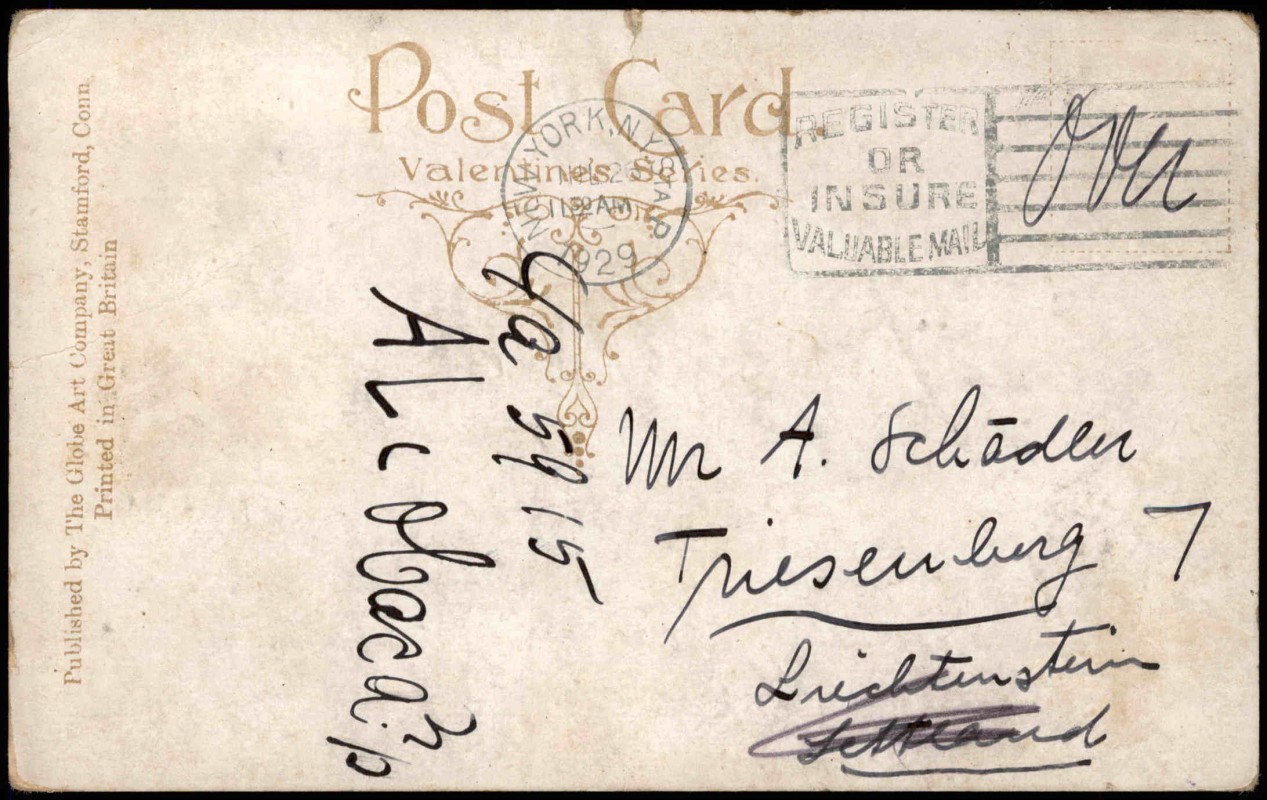 Post Card.
Valentines Series.
NEW YORK, N.Y.
1130 AM
1929
STA. P
REGISTER
OR
INSURE
VALUABLE MAIL
Over
Published by The Globe Art Company, Stamford, Conn
Printed in Great Britain
5915
Mr A. Schädler
Triesenberg 7
Liechtenstein